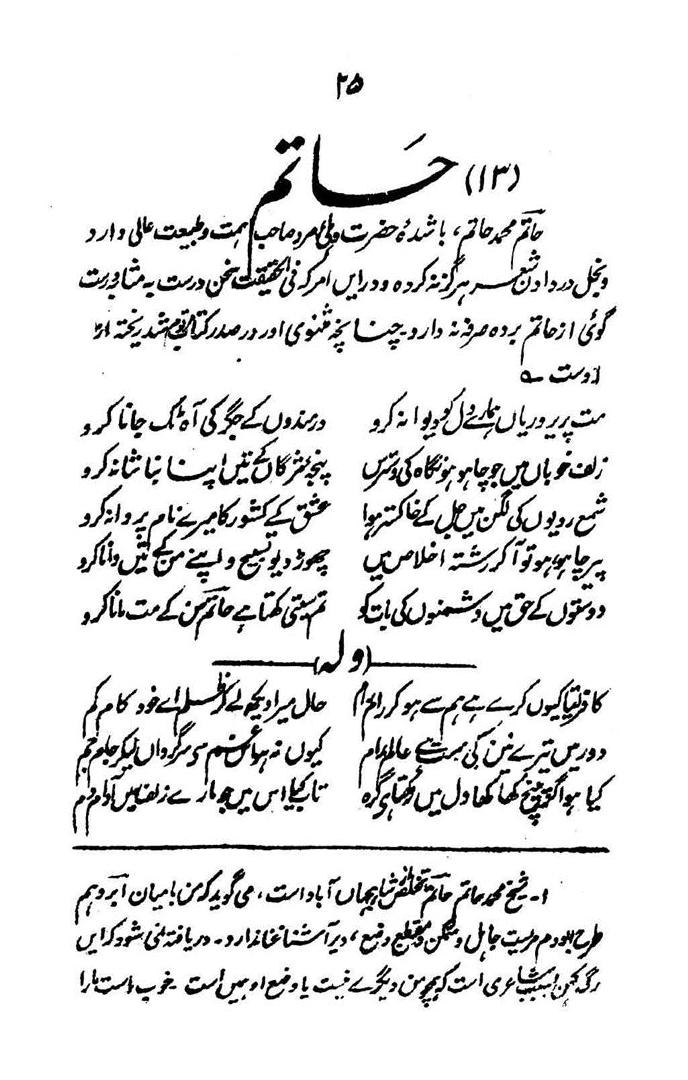 ۲۵
(۱۳) حَاتم
حاتم محمد حاتم، باشندۂ حضرت دہلی مرد صاحب ہمت و طبیعت عالی دارد
و بخل در دادن شعر ہرگز نہ کردہ و در ایں امر کہ فی الحقیقت سخن درست بہ
گوئی از حاتم بردہ صرفہ نہ دارد۔ چنانچہ مثنوی اور در صدر
اوست ؎
مت پریرویاں ہمارے دل کو دیوانہ کرو درمندوں کے جگر کی آہ ٹک جانا کرو
زلف خوباں میں جو چاہو ہو نگاہ کی دسترس پنجۂ مژگاں کے تئیں اپنا بنا شانہ کرو
شمع رویوں کی لگن میں جل کے خاکستر ہوا عشق کے کشور کا میرے نام پروانہ کرو
پیر چاہو ہو تو آکر رشتہ اخلاص میں چھوڑ دیو تسبیح و اپنے من کے تئیں دانا کرو
دوستوں کے حق میں دشمنوں کی بات کو تم ستی کہتا ہے حاتم سن کے مت مانا کرو
(ولہ)
کافر کیوں کرے ہے ہم سے ہو کر رام رم حال میرا دیکھ لے کر ظلم اے خود کام کم
دور میں تیرے نین کی سے عالم مدام کیوں نہ ہو سرگرداں لیکر جام جم
کیا ہوا گر کھا کھا دل میں رکھتا ہی گرہ تاب کیا اس میں جو مارے زلف میں آدام دم
۱۔ شیخ محمد حاتم حاتم تخلص شاہجہاں آباد است، می گوید کہ من با میان آبرو ہم
طرح بودم مردیست جاہل و متمکن و مقطع وضع، دیر آشنا غنا ندارد۔ دریافتہ نمی شود کہ ایں
رگ کہن بسبب شاعری است کہ ہمچو من دیگرے نیست یا وضع او ہمیں است۔ خوب است مارا